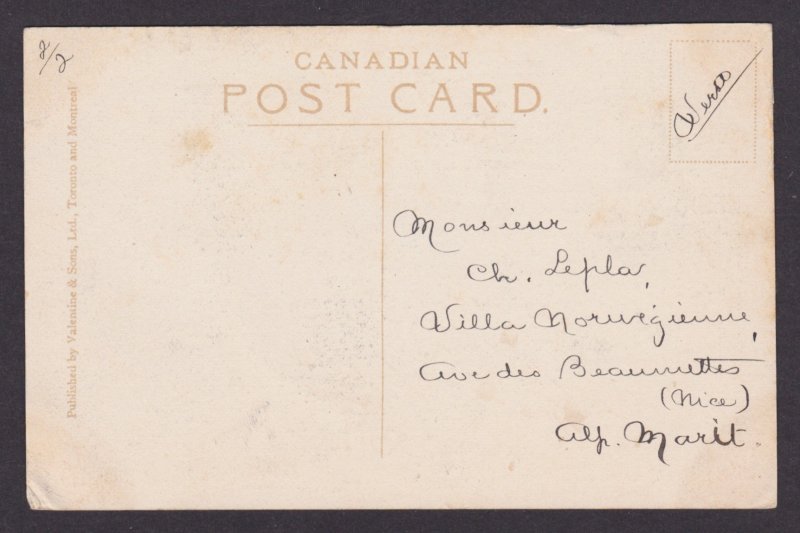 2/2
CANADIAN
POST CARD.
Verso
Published by Valentine & Sons, Ltd., Toronto and Montreal
Monsieur
Ch. Lepla,
Villa Norwégienne,
Ave des Beaumettes
(Nice)
Alp. Marit.